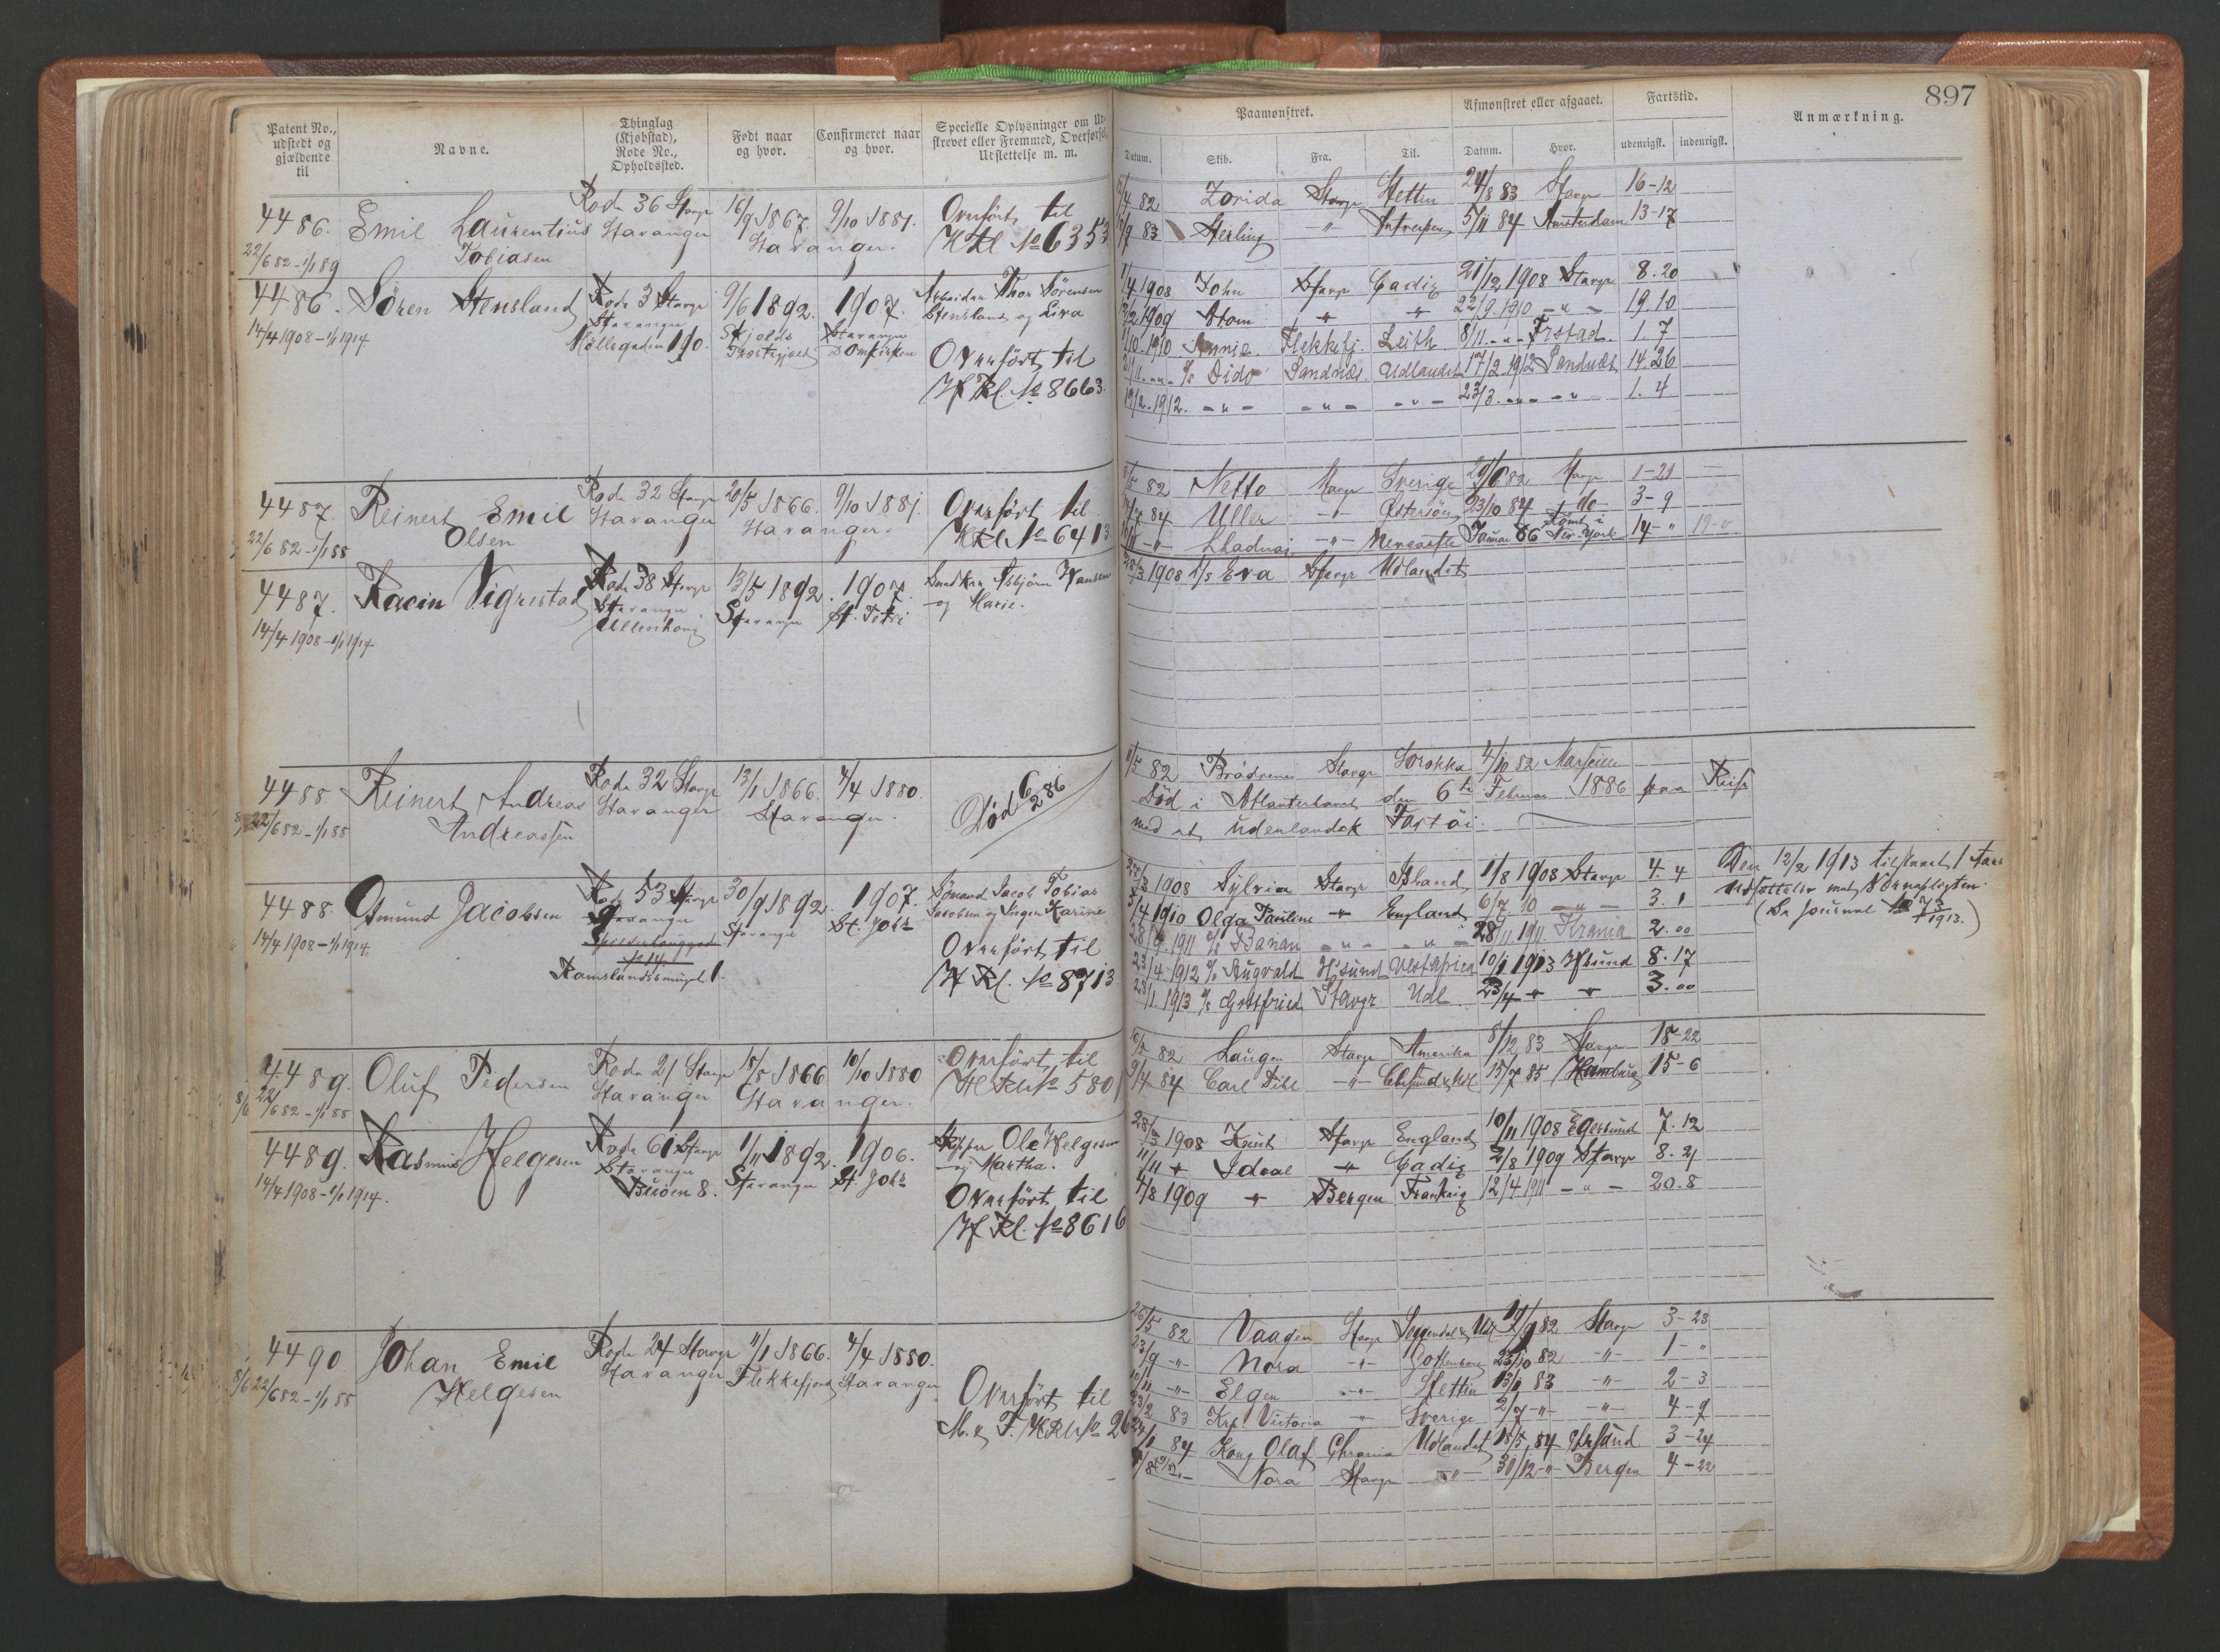 897
Patent No., udstedt og gjældende til
Navne.
Thinglag (Kjøbstad), Rode No., Opholdssted.
Født naar og hvor.
Confirmeret naar og hvor.
Specielle Oplysninger om Ud-
strevet eller Fremmed, Overførsel,
Udslettelse m. m.
Paamønstret.
Afmønstret eller afgaaet.
Fartstid.
Anmærkning.
Datum. Skib. Fra. Til. Datum. Hvor. udenrigsk. indenrigsk.
4486. Emil Laurentius Tobiasen
22/6 82 - 1/1 89
Rode 36 Stavgr Stavanger
16/9 1867. 9/10 1881.
Stavanger.
Overført til
HRl No 6353
82 Zorida Stavgr Stettin 24/8 83 Stavgr 16-12
83 Sterling -"- Antwerpen 5/11 84 Amsterdam 13-17
4486. Sören Stensland
14/4 1908 - 1/1 1914
Rode 3 Stavgr
Stavanger
Möllegaden 190.
9/6 1892. 1907.
Skjolds Stavanger
Domkirken
Arbeider Thor Sörensen
Stensland og Liva
Overført til
Hf Rl. No 8663.
1/4 1908 John Stavgr Cadiz 21/12 1908 Stavgr 8.20
1909 Stam " " 22/9 1910 -"- 19.10
1/10 1910 Annie. Flekkefj. Leith 8/11 -"- 1.7
Dido Sandnæs Udlandet 17/2 1912 Sandnæs 14.26
19/2 1912. -"- -"- -"- 23/3 -"- -"- 1.4
4487. Reinert Emil Olsen
22/6 82 - 1/1 88
Rode 32 Stavgr Stavanger
20/5 1866. 9/10 1881.
Stavanger.
Overført til
HRl No 6413
82 Netto Stavgr Sverige 29/6 82 Stavgr 1-21
84 Uller -"- Østersöen 23/10 84 do 3-9
-"- -"- Januar 86 Rømt i New-York 14-" 19-0
4487. Racin Vigrestad
14/4 1908 - 1/1 1914
Rode 38 Stavgr
Stavanger
Ullenhaug
13/5 1892. 1907.
Stavanger St. Petri
Hansen
og Marie.
28/3 1908 Eva Stavgr Udlandet
4488. Reinert Andreas Andreassen
22/6 82 - 1/1 88
Rode 32 Stavgr Stavanger
13/1 1866. 4/4 1880.
Stavanger.
Død 6/2 86
11/5 82 Brödrene Stavgr Sorokka 4/10 82 Marseille
Död i Atlanterhavet den 6te Februar 1886 paa Reise
med et udenlandsk Fartöi.
4488. Osmund Jacobsen
14/4 1908 - 1/1 1914.
Rode 53 Stavgr
Stavanger
No 14.
Ramslandssmuget 1.
30/9 1892. 1907.
Stavanger St. Johs
Sömand Jacob Tobias
Jacobsen og Inger Karine
Overført til
Hf Rl. No 8713
1908 Sylvia Stavgr Island 11/8 1908 Stavgr 4.4
1/4 1910 Olga Pauline " England 6/7 10 -"- 3.1
1911 Banan -"- -"- 28/11 1911. Krania 2.00
23/4 1912 Augvald H'sund Vestafrica 10/1 1913 H'sund 8.17
23/1 1913 Gottfried Stavgr. Udl. 23/4 " " 3.00
Den 12/2 1913 tilstaaet 1 Aars
Udsættelse med Værnepligten.
(Se Journal No 73/1913.)
4489. Oluf Pedersen
22/6 82 - 1/1 88
Rode 21 Stavgr Stavanger
18/5 1866 10/10 1880
Stavanger.
Overført til
HRl No 580
82 Laugen Stavgr Amerika 8/12 83 Stavgr 18-22
9/4 84 Carl Dihl -"- 15/7 85 Hamburg 15-6
4489. Rasmus Helgesen
14/4 1908 - 1/1 1914.
Rode 61 Stavgr
Stavanger
Buöen 8.
1/11 1892. 1906.
Stavanger St. Johs
Skipper Ole Helgesen
og Martha.
Overført til
Hf Rl. No 8616
28/3 1908 Knut Stavgr England 10/11 1908 Egersund 7.12
11/11 " Ideal " Cadiz 2/8 1909 Stavgr 8.21
4/8 1909 " Bergen Frankrig 12/4 1911 -"- 20.8
4490. Johan Emil Helgesen
8/6 22/6 82 - 1/1 88
Rode 24 Stavgr Stavanger
11/1 1866. 4/4 1880.
Flekkefjord Stavanger
Overført til
M. & F. HRl No 26
26/5 82 Vaagen Stavgr 82 Stavgr 3-23
23/9 -"- Nora -"- Gothenborg 23/10 82 -"- 1-"
-"- Elgen -"- Stettin 13/1 83 -"- 2-3
83 Victoria -"- Sverige 2/7 -"- -"- 4-9
84 Kong Olaf Chrania Udlandet 18/5 84 3-24
Nora Stavgr -"- 30/12 -"- Bergen 4-22